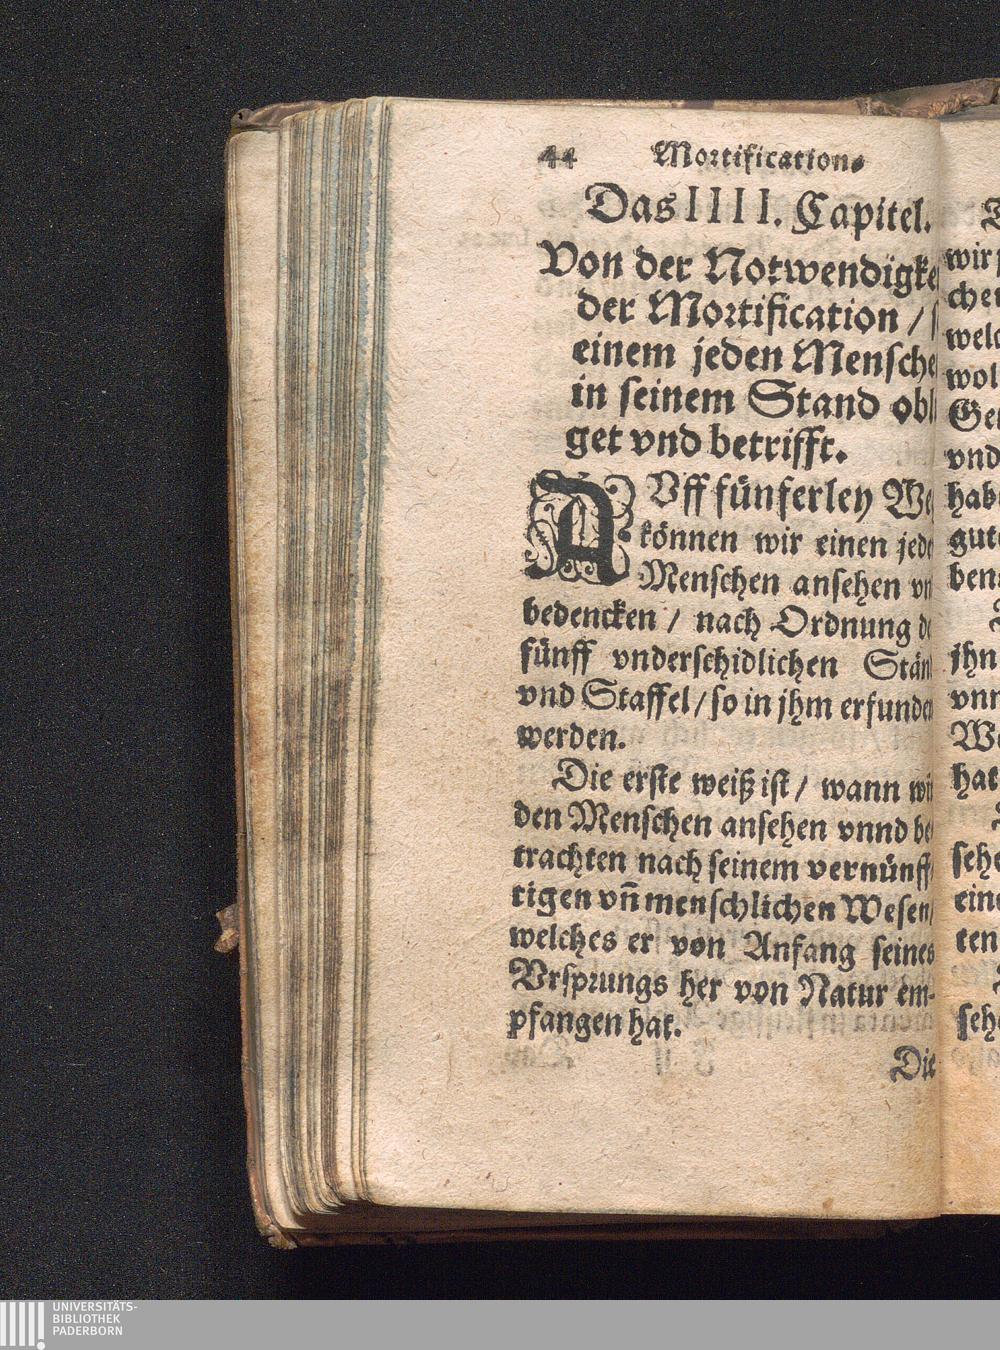 44 Mortification.
Das IIII. Capitel.
Von der Notwendigke
der Mortification / s
einem jeden Mensche
in seinem Stand obl
get vnd betrifft.
AVff fünferley We
können wir einen jede
Menschen ansehen vn
bedencken / nach Ordnung de
fünff vnderschidlichen Stän
vnd Staffel / so in jhm erfunde
werden.
Die erste weiß ist / wann wir
den Menschen ansehen vnnd be
trachten nach seinem vernünff
tigen vñ menschlichen Wesen /
welches er von Anfang seines
Vrsprungs her von Natur em-
pfangen hat.
Die
wir
chen
welc
wol
Gei
vnd
hab
gute
ben
jhn
vnn
We
hat
sehe
eine
ten
sehe
UNIVERSITÄTS-
BIBLIOTHEK
PADERBORN